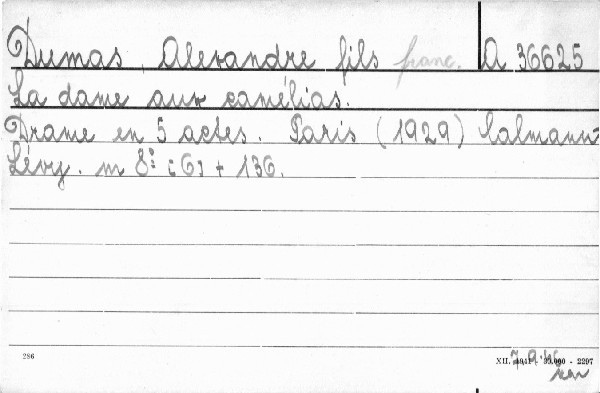 Dumas, Alexandre fils franc. A 36625
La dame aux camélias.
Drame en 5 actes. Paris (1929) Calmann-
Lévy. m 8° [6] + 136.
286
XII. 1941 - 30.000 - 2297